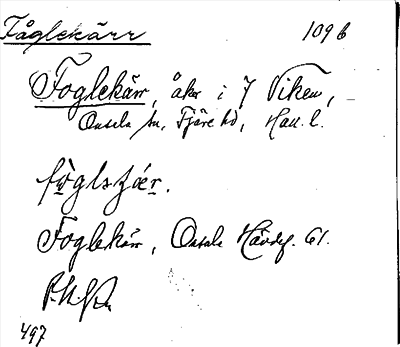 Fåglekärr 1096
Foglekärr, åker i 7 Viken,
Onsala sn, Fjäre hd, Hall. l.
Foglekärr, Onsala Hävdf. 61.
497